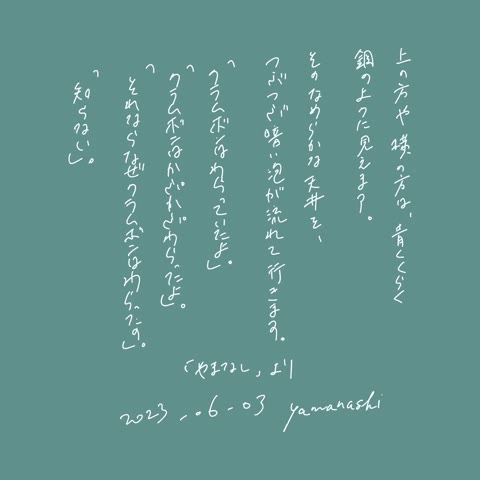 上の方や横の方は、青くくらく
鋼のように見えます。
そのなめらかな天井を、
つぶつぶ暗い泡が流れて行きます。
「クラムボンはわらっていたよ。」
「クラムボンはかぷかぷわらったよ。」
「それならなぜクラムボンはわらったの。」
「知らない。」
「やまなし」より
2023-06-03 yamanashi